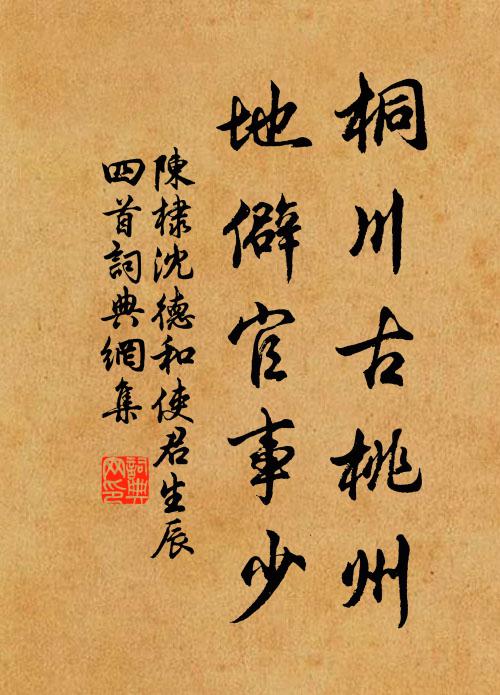 桐川古桃州
地僻官事少
陳棣沈德和使君生辰
四首詞典網集
詞典